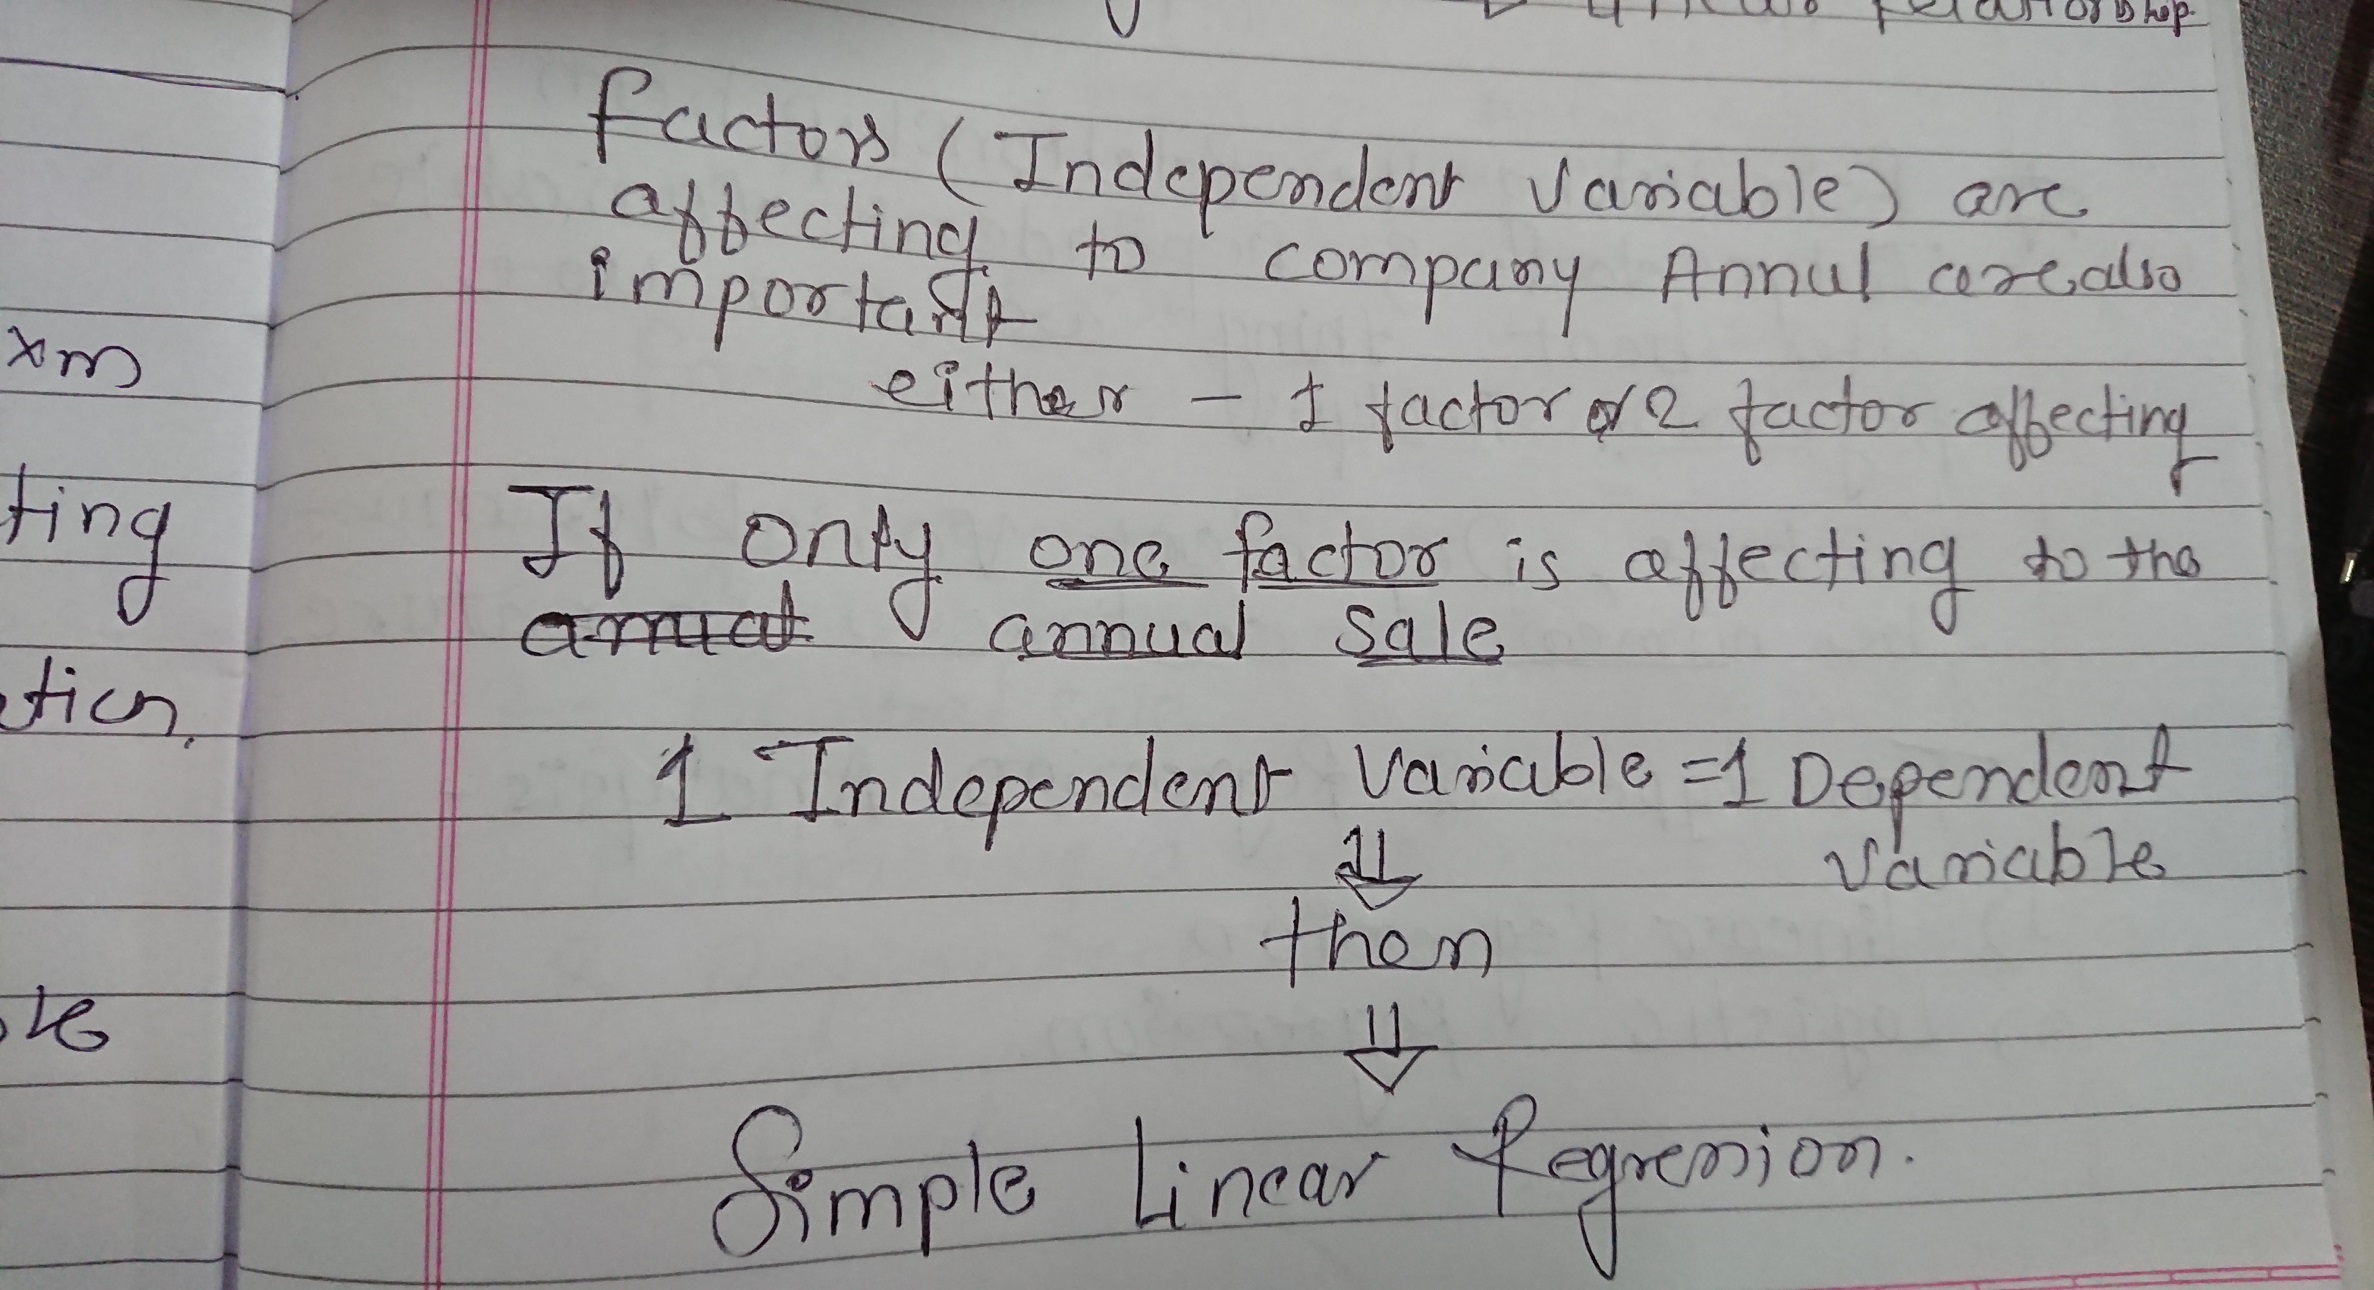 relationship
factors (Independent Variable) are
affecting to company Annul are also
important
either - 1 factor or 2 factor affecting
If only one factor is affecting to the
annual sale
1 Independent Variable = 1 Dependent
Variable
⇓
then
⇓
Simple Linear Regression.
xm
ting
tion.
le